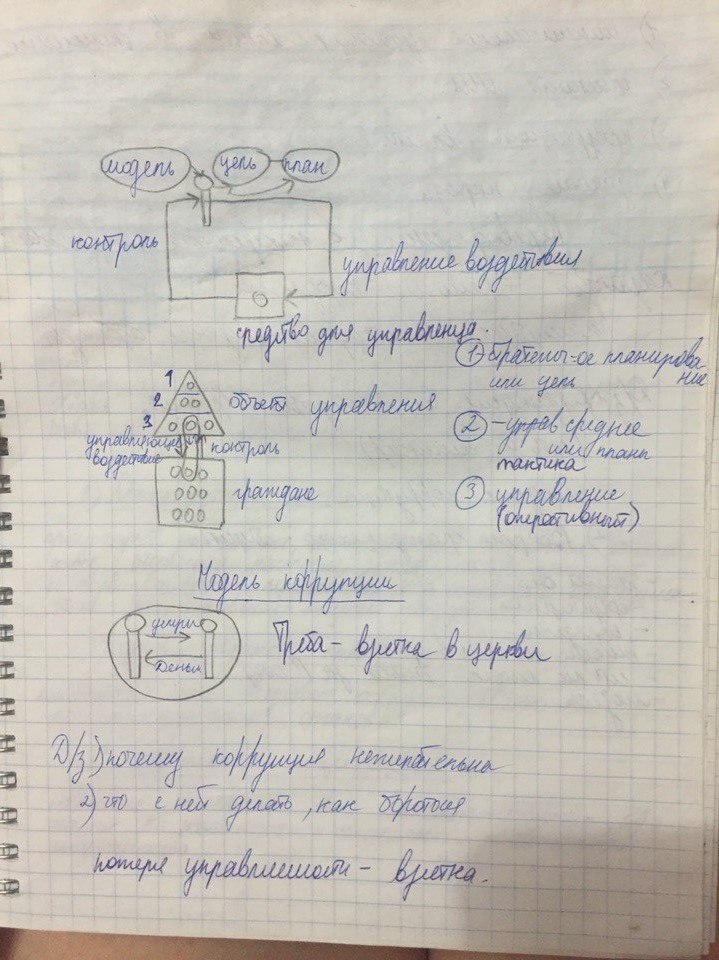 модель цель план
контроль
управление воздействия
средство для управленца.
1 2 3
объект управления
управляющие воздействие
контроль
граждане
① стратегич-ое планирова-
или цель ние
② -управ среднее
или планы
тактика
③ управление
(оперативный)
Модель коррупции
деньги
Треба - взятка в церкви
Д/з 1) почему коррупция нежелательна
2) что с ней делать, как бороться
потеря управляемости - взятка.